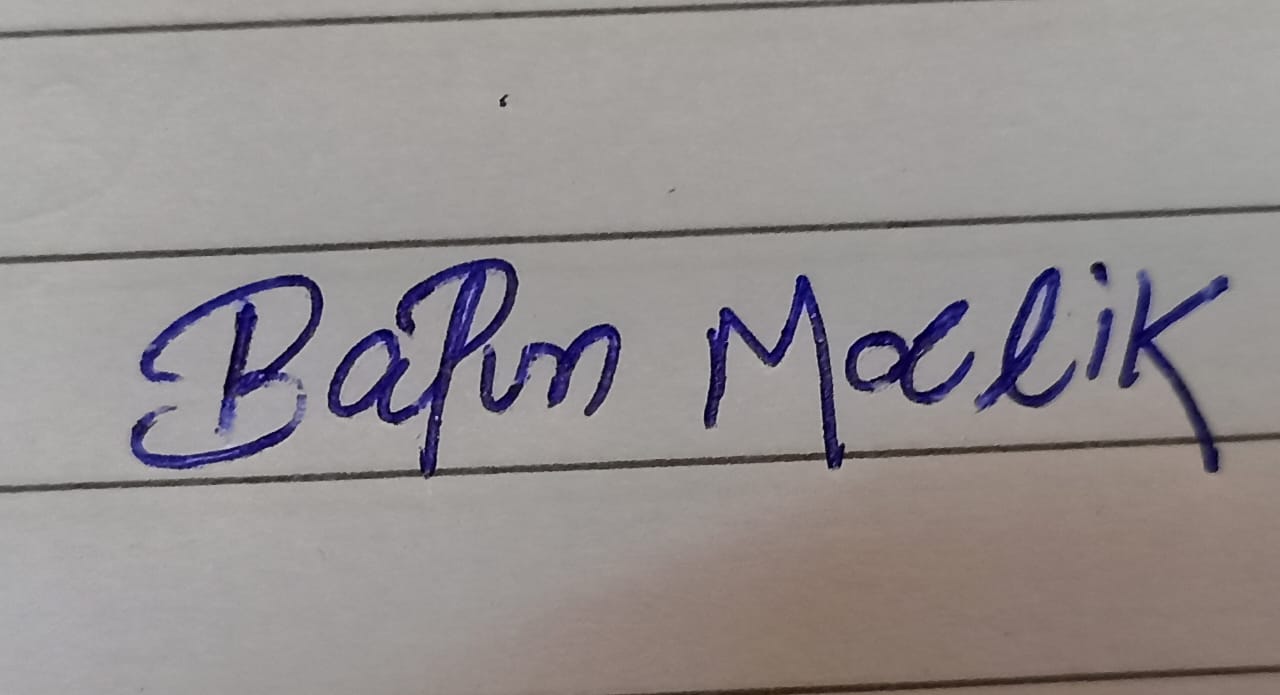 Bapun Malik